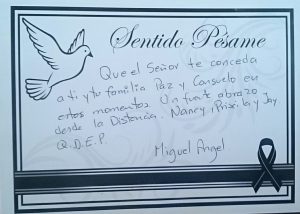 Sentido Pésame
Que el Señor te conceda
a ti y tu familia Paz y Consuelo en
estos momentos. Un fuerte abrazo
desde la Distancia. Nancy, Priscila y Jay
Q.D.E.P.
Miguel Angel